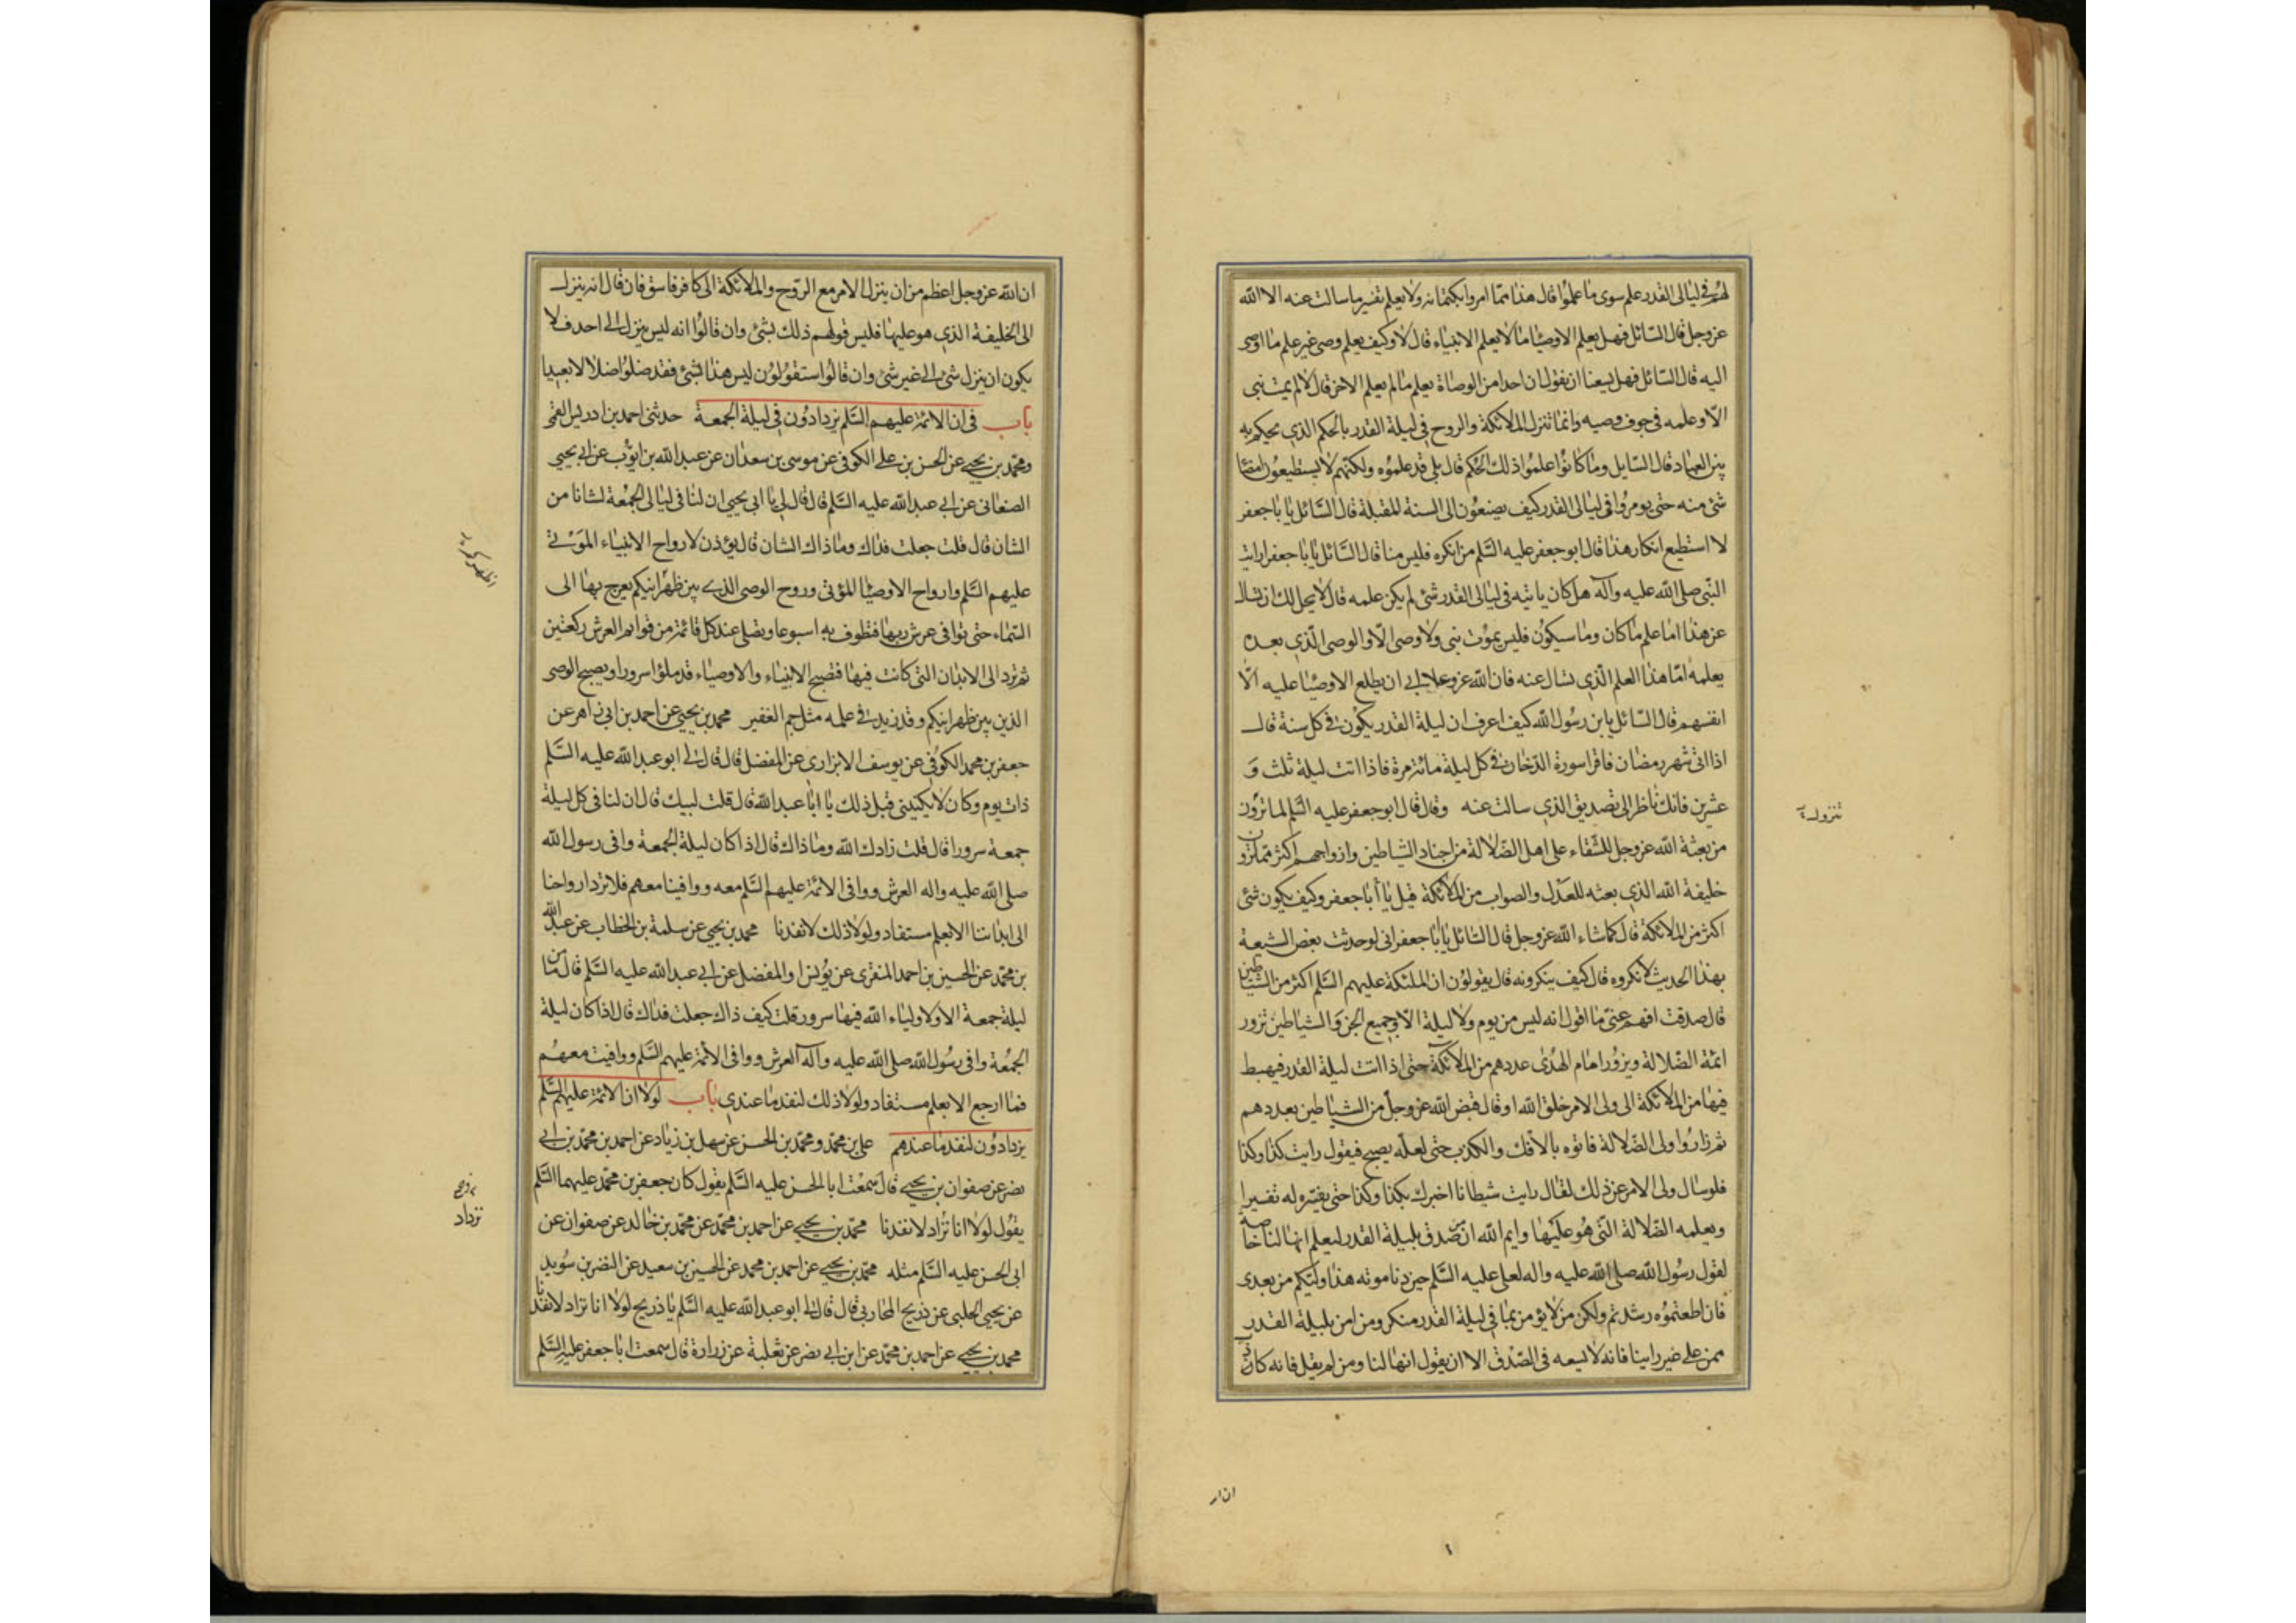 لهم في ليالى القدر علم سوى ما علموا قال هذا مما امروا بكتمانه ولا يعلم تفسير ما سالت عنه الا الله
عزوجل قال السائل فهل يعلم الاوصيا ما لا يعلم الانبياء قال لا وكيف يعلم وصى غير علم ما اوصى
اليه قال السائل فهل يسعنا ان نقول ان احدا من الوصاة يعلم ما لم يعلم الاخر قال لا لم يمت نبى
الا وعلمه في جوف وصيه وانما تنزل الملائكة والروح في ليلة القدر بالحكم الذي يحكم به
بين العباد قال السايل وما كانوا علموا ذلك الحكم قال بلى قد علموه ولكنهم لا يستطيعون امضا
شئ منه حتى يومروا في ليالى القدر كيف يصنعون الى السنة المقبلة قال السائل يا با جعفر
لا استطيع انكار هذا قال ابو جعفر عليه السلم من انكره فليس منا قال السائل يا با جعفر ارايت
النبى صلى الله عليه وآله هل كان ياتيه في ليالى القدر شئ لم يكن علمه قال لا يحل لك ان تسال
عن هذا اما علم ما كان وما سيكون فليس يموت نبى ولا وصى الا والوصى الذي بعده
يعلمه اما هذا العلم الذي تسال عنه فان الله عزوعلا ابى ان يطلع الاوصيا عليه الا
انفسهم قال السائل يابن رسول الله كيف اعرف ان ليلة القدر يكون في كل سنة قال
اذا اتى شهر رمضان فاقرا سورة الدخان في كل ليلة مائة مرة فاذا اتت ليلة ثلث و
عشرين فانك ناظر الى تصديق الذي سالت عنه وقال قال ابو جعفر عليه السلم لما ترون
من بعثه الله عزوجل للشقاء على اهل الضلالة من اجناد الشياطين وازواجهم اكثر مما ترون
خليفة الله الذي بعثه للعدل والصواب من الملائكة قيل يا أبا جعفر وكيف يكون شئ
اكثر من الملائكة قال كما شاء الله عزوجل قال السائل يا با جعفر انى لو حدثت بعض الشيعة
بهذا الحديث لانكروه قال كيف ينكرونه قال يقولون ان الملئكة عليهم السلم اكثر من الشياطين
قال صدقت افهم عنى ما اقول انه ليس من يوم ولا ليلة الا وجميع الجن والشياطين تزور
ائمة الضلالة ويزور امام الهدى عددهم من الملائكة حتى اذا اتت ليلة القدر فيهبط
فيها من الملائكة الى ولى الامر خلق الله او قال قبض الله عزوجل من الشياطين بعددهم
ثم زاروا ولى الضلالة فاتوه بالافك والكذب حتى لعله يصبح فيقول رايت كذا وكذا
فلو سال ولى الامر عن ذلك لقال رايت شيطانا اخبرك بكذا وكذا حتى يفسر له تفسيرا
ويعلمه الضلالة التى هو عليها وايم الله ان من صدق بليلة القدر ليعلم انها لنا خاصة
لقول رسول الله صلى الله عليه واله لعلى عليه السلم حين دنا موته هذا وليكم من بعدى
فان اطعتموه رشدتم ولكن من لا يؤمن بما في ليلة القدر منكر ومن امن بليلة القدر
ممن على غير راينا فانه لا يسعه في الصدق الا ان يقول انها لنا ومن لم يقل فانه كاذب
ان ار
ان الله عزوجل اعظم من ان ينزل الامر مع الروح والملائكة الى كافر فاسق فان قال انه ينزل
الى الخليفة الذي هو عليها فليس قولهم ذلك بشئ وان قالوا انه ليس ينزل الى احد فلا
يكون ان ينزل شئ الى غير شئ وان قالوا ستقولون ليس هذا بشئ فقد ضلوا ضلالا بعيدا
باب في ان الائمة عليهم السلم يزدادون في ليلة الجمعة حدثنى احمد بن ادريس القمى
ومحمد بن يحيى عن الحسن بن على الكوفى عن موسى بن سعدان عن عبد الله بن ايوب عن ابى يحيى
الصنعانى عن ابى عبد الله عليه السلم قال قال لى يا ابى يحيى ان لنا في ليالى الجمعة لشانا من
الشان قال قلت جعلت فداك وما ذاك الشان قال يؤذن لارواح الانبياء الموتى
عليهم السلم وارواح الاوصيا الموتى وروح الوصى الذي بين ظهرانيكم يعرج بها الى
السماء حتى توافى عرش ربها فتطوف به اسبوعا وتصلى عند كل قائمة من قوائم العرش ركعتين
ثم ترد الى الابدان التى كانت فيها فتصبح الانبياء والاوصياء قد ملؤا سرورا ويصبح الوصى
الذين بين ظهرانيكم وقد زيد في علمه مثل جم الغفير محمد بن يحيى عن احمد بن ابى زاهر عن
جعفر بن محمد الكوفى عن يوسف الابزارى عن المفضل قال قال لى ابو عبد الله عليه السلم
ذات يوم وكان لا يكنينى قبل ذلك يا ابا عبد الله قال قلت لبيك قال ان لنا في كل ليلة
جمعة سرورا قال قلت زادك الله وما ذاك قال اذا كان ليلة الجمعة وافى رسول الله
صلى الله عليه واله العرش ووافى الائمة عليهم السلم معه ووافينا معهم فلا ترد ارواحنا
الى ابداننا الا بعلم مستفاد ولولا ذلك لانفدنا محمد بن يحيى عن سلمة بن الخطاب عن عبد الله
بن محمد عن الحسين بن احمد المنقرى عن يونس او المفضل عن ابى عبد الله عليه السلم قال ما من
ليلة جمعة الا ولاولياء الله فيها سرور قلت كيف ذاك جعلت فداك قال اذا كان ليلة
الجمعة وافى رسول الله صلى الله عليه وآله العرش ووافى الائمة عليهم السلم ووافيت معهم
فما ارجع الا بعلم مستفاد ولولا ذلك لنفد ما عندي باب لولا ان الائمة عليهم السلم
يزدادون لنفد ما عندهم على بن محمد ومحمد بن الحسن عن سهل بن زياد عن احمد بن محمد بن ابى
نصر عن صفوان بن يحيى قال سمعت ابا الحسن عليه السلم يقول كان جعفر بن محمد عليهما السلم
يقول لولا انا نزاد لانفدنا محمد بن يحيى عن احمد بن محمد عن محمد بن خالد عن صفوان عن
ابى الحسن عليه السلم مثله محمد بن يحيى عن احمد بن محمد عن الحسين بن سعيد عن النضر بن سويد
عن يحيى الحلبى عن ذريح المحاربى قال قال لى ابو عبد الله عليه السلم يا ذريح لولا انا نزاد لانفدنا
محمد بن يحيى عن احمد بن محمد عن ابن ابى نصر عن ثعلبة عن زرارة قال سمعت ابا جعفر عليه السلم
نزداد